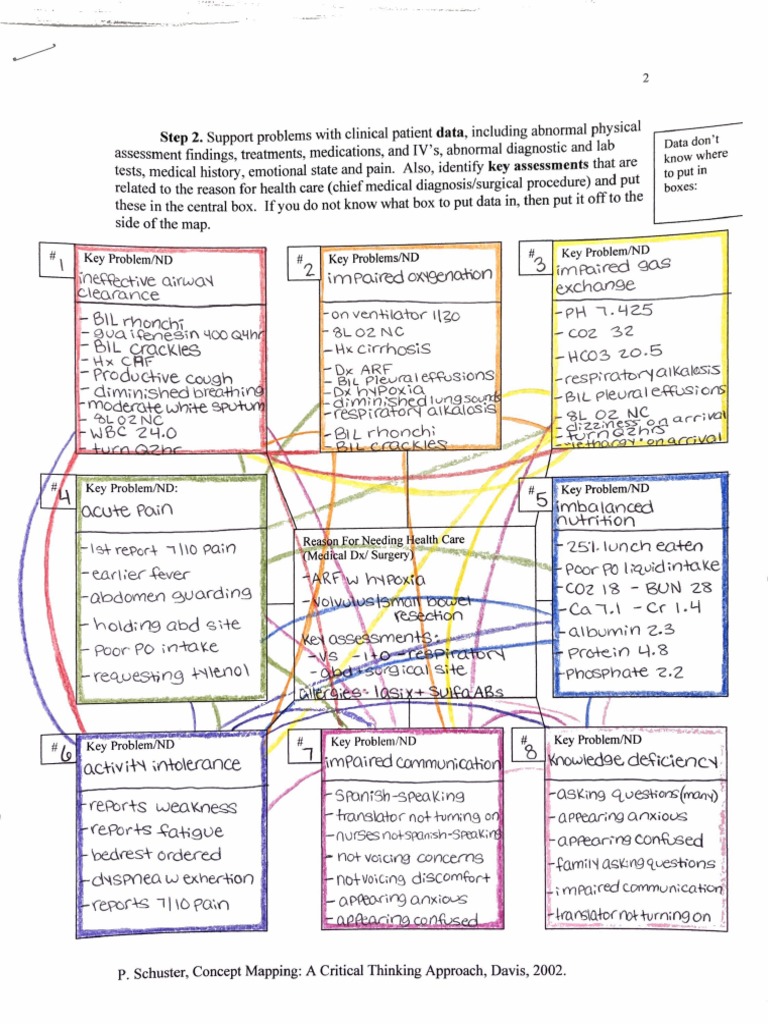 2
Step 2. Support problems with clinical patient data, including abnormal physical
assessment findings, treatments, medications, and IV's, abnormal diagnostic and lab
tests, medical history, emotional state and pain. Also, identify key assessments that are
related to the reason for health care (chief medical diagnosis/surgical procedure) and put
these in the central box. If you do not know what box to put data in, then put it off to the
side of the map.
Data don't
know where
to put in
boxes:
#1
Key Problem/ND
ineffective airway
clearance
- BIL rhonchi
- guaifenesin 400 Q4hr
- BIL crackles
- Hx CHF
- Productive cough
- diminished breathing
- moderate white sputum
- 8L O2 NC
- WBC 24.0
- turn Q2hr
#2
Key Problems/ND
impaired oxygenation
- on ventilator 1/30
- 8L O2 NC
- Hx cirrhosis
- Dx ARF
- BIL Pleural effusions
- Dx hypoxia
- diminished lung sounds
- respiratory alkalosis
- BIL rhonchi
- BIL crackles
#3
Key Problem/ND
impaired gas
exchange
- PH 7.425
- CO2 32
- HCO3 20.5
- respiratory alkalosis
- BIL pleural effusions
- 8L O2 NC
- dizziness on arrival
- turn Q2hrs
- lethargy on arrival
#4
Key Problem/ND:
acute pain
- 1st report 7/10 pain
- earlier fever
- abdomen guarding
- holding abd site
- poor PO intake
- requesting tylenol
Reason For Needing Health Care
(Medical Dx/ Surgery)
- ARF w hypoxia
- volvulus/small bowel
resection
Key assessments:
- VS - I+O - respiratory
- abd + surgical site
allergies: lasix + Sulfa ABs
#5
Key Problem/ND
imbalanced
nutrition
- 25% lunch eaten
- poor PO liquid intake
- CO2 18 - BUN 28
- Ca 7.1 - Cr 1.4
- albumin 2.3
- protein 4.8
- Phosphate 2.2
#6
Key Problem/ND
activity intolerance
- reports weakness
- reports fatigue
- bedrest ordered
- dyspnea w exhertion
- reports 7/10 pain
#7
Key Problem/ND
impaired communication
- Spanish-speaking
- translator not turning on
- nurses not spanish-speaking
- not voicing concerns
- not voicing discomfort
- appearing anxious
- appearing confused
#8
Key Problem/ND
knowledge deficiency
- asking questions (many)
- appearing anxious
- appearing confused
- family asking questions
- impaired communication
- translator not turning on
P. Schuster, Concept Mapping: A Critical Thinking Approach, Davis, 2002.